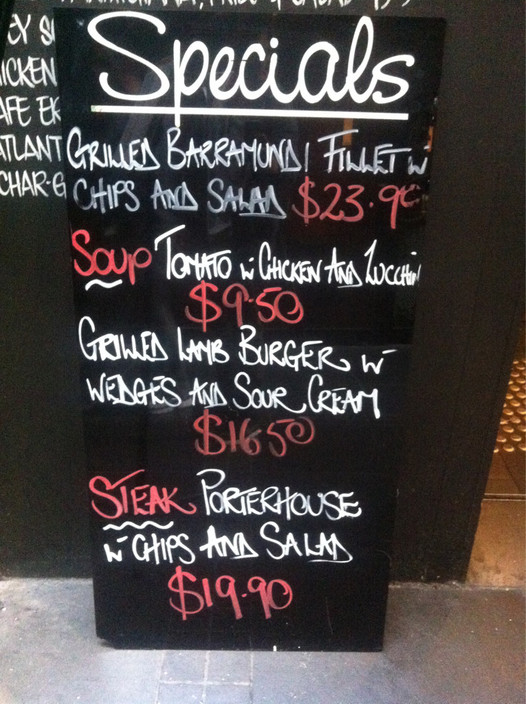 Specials
GRILLED BARRAMUNDI FILLET w
CHIPS AND SALAD $23.90
Soup TOMATO w CHICKEN AND ZUCCHINI
$9.50
GRILLED LAMB BURGER w
WEDGES AND SOUR CREAM
$16.50
STEAK PORTERHOUSE
w CHIPS AND SALAD
$19.90